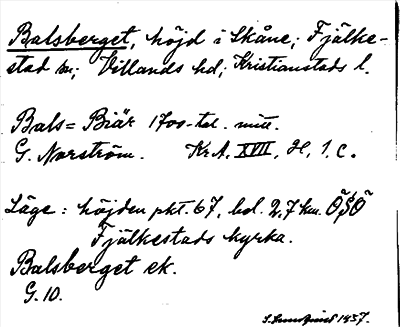 Balsberget, höjd i Skåne; Fjälke-
stad sn; Villands hd; Kristianstads l.
Bals= Biär 1700-tal. mitt.
G. Norström. KrA, XVII, H, 1, c.
Läge: höjden pkt. 67, bel. 2,7 km. ÖSÖ
Fjälkestads kyrka.
Balsberget ek.
G. 10.
1937.